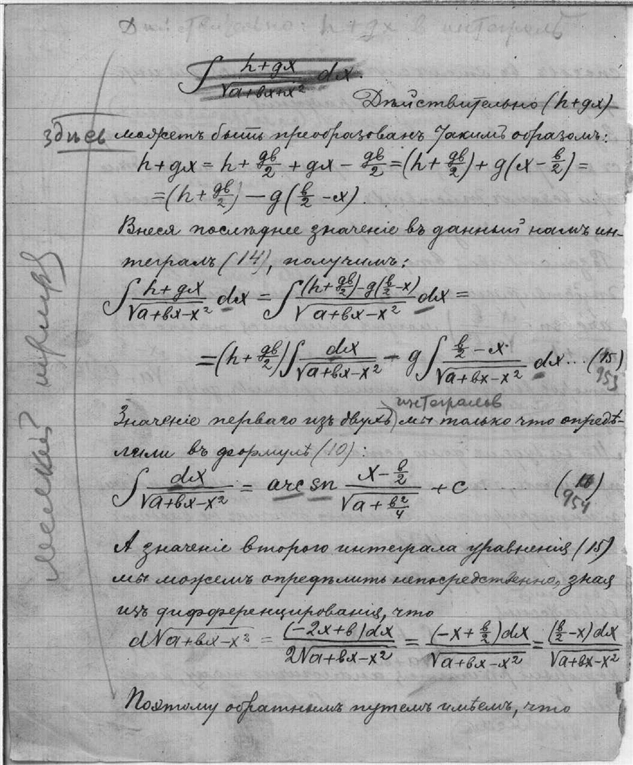 Дѣйствительно: h+gx въ интегралъ
∫ h+gx / √a+bx+x² dx.
Дѣйствительно (h+gx)
здѣсь можетъ быть преобразованъ такимъ образомъ:
h+gx = h + gb/2 + gx − gb/2 = (h + gb/2) + g(x − b/2) =
= (h + gb/2) − g(b/2 − x).
Внеся послѣднее значеніе въ данный намъ ин-
тегралъ (14), получимъ:
∫ h+gx / √a+bx−x² dx = ∫ (h + gb/2) − g(b/2 − x) / √a+bx−x² dx =
= (h + gb/2) ∫ dx / √a+bx−x² − g ∫ b/2 − x / √a+bx−x² dx ... (15)
953
интеграловъ
Значеніе перваго изъ двухъ мы только что опредѣ-
лили въ формулѣ (10):
∫ dx / √a+bx−x² = arc sn x − b/2 / √a + b²/4 + c
954
А значеніе второго интеграла уравненія (15)
мы можемъ опредѣлить непосредственно, зная
изъ дифференцированія, что
d√a+bx−x² = (−2x+b)dx / 2√a+bx−x² = (−x + b/2)dx / √a+bx−x² = (b/2 − x)dx / √a+bx−x²
Поэтому обратнымъ путемъ имѣемъ, что
мелкій